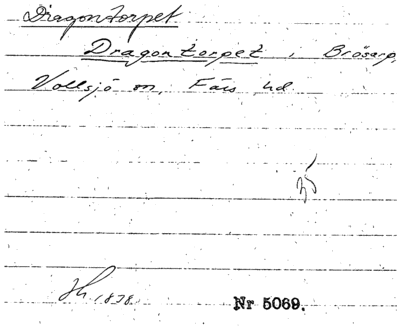 Dragontorpet
Dragontorpet, Brösarp,
Vollsjö sn, Färs hd.
Jh 1838.
Nr 5069.